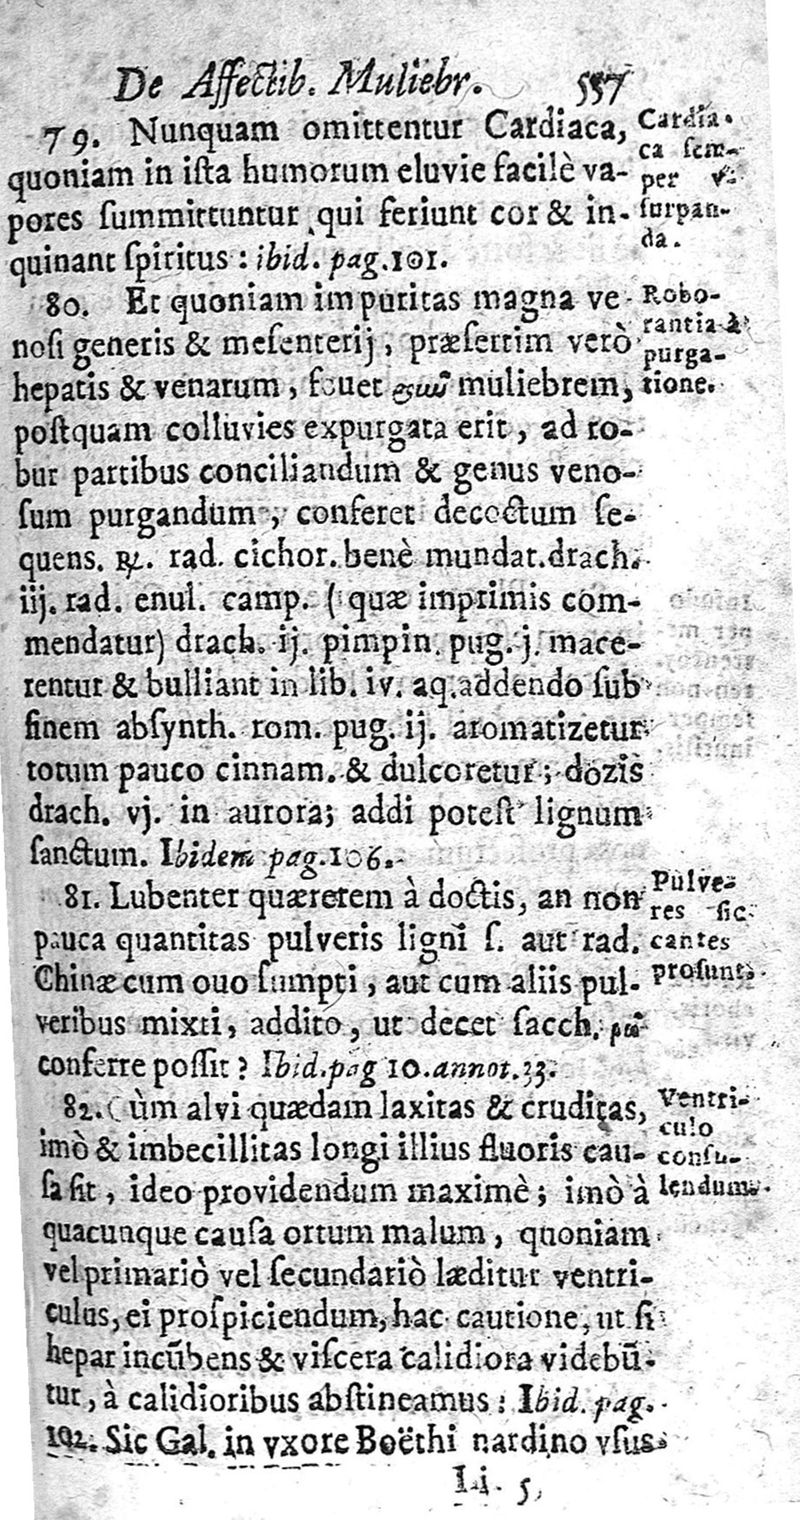 De Affectib. Muliebr. 557
79. Nunquam omittentur Cardiaca,
quoniam in ista humorum eluvie facilè va-
pores summittuntur qui feriunt cor & in-
quinant spiritus : ibid. pag. 101.
Cardia-
ca sem-
per v-
surpan-
da.
80. Et quoniam impuritas magna ve-
nosi generis & mesenterij, præsertim verò
hepatis & venarum, fouet muliebrem,
postquam colluvies expurgata erit, ad ro-
bur partibus conciliandum & genus veno-
sum purgandum, conferet decoctum se-
quens. ℞. rad. cichor. benè mundat. drach.
iij. rad. enul. camp. (quæ imprimis com-
mendatur) drach. ij. pimpin. pug. j. mace-
rentur & bulliant in lib. iv. aq. addendo sub
finem absynth. rom. pug. ij. aromatizetur
totum pauco cinnam. & dulcoretur; dozis
drach. vj. in aurora; addi potest lignum
sanctum. Ibidem pag. 106.
Robo-
rantia à
purga-
tione.
81. Lubenter quærerem à doctis, an non
pauca quantitas pulveris ligni s. aut rad.
Chinæ cum ouo sumpti, aut cum aliis pul-
veribus mixti, addito, ut decet sacch.
conferre possit? Ibid. pag 10. annot. 33.
Pulve-
res sic-
cantes
prosunt.
82. Cùm alvi quædam laxitas & cruditas,
imò & imbecillitas longi illius fluoris cau-
sa sit, ideo providendum maximè; imò à
quacunque causa ortum malum, quoniam
vel primariò vel secundariò læditur ventri-
culus, ei prospiciendum, hac cautione, ut si
hepar incūbens & viscera calidiora videbū-
tur, à calidioribus abstineamus: Ibid. pag.
102. Sic Gal. in vxore Boëthi nardino vsus
Ventri-
culo
consu-
lendum.
Ii. 5